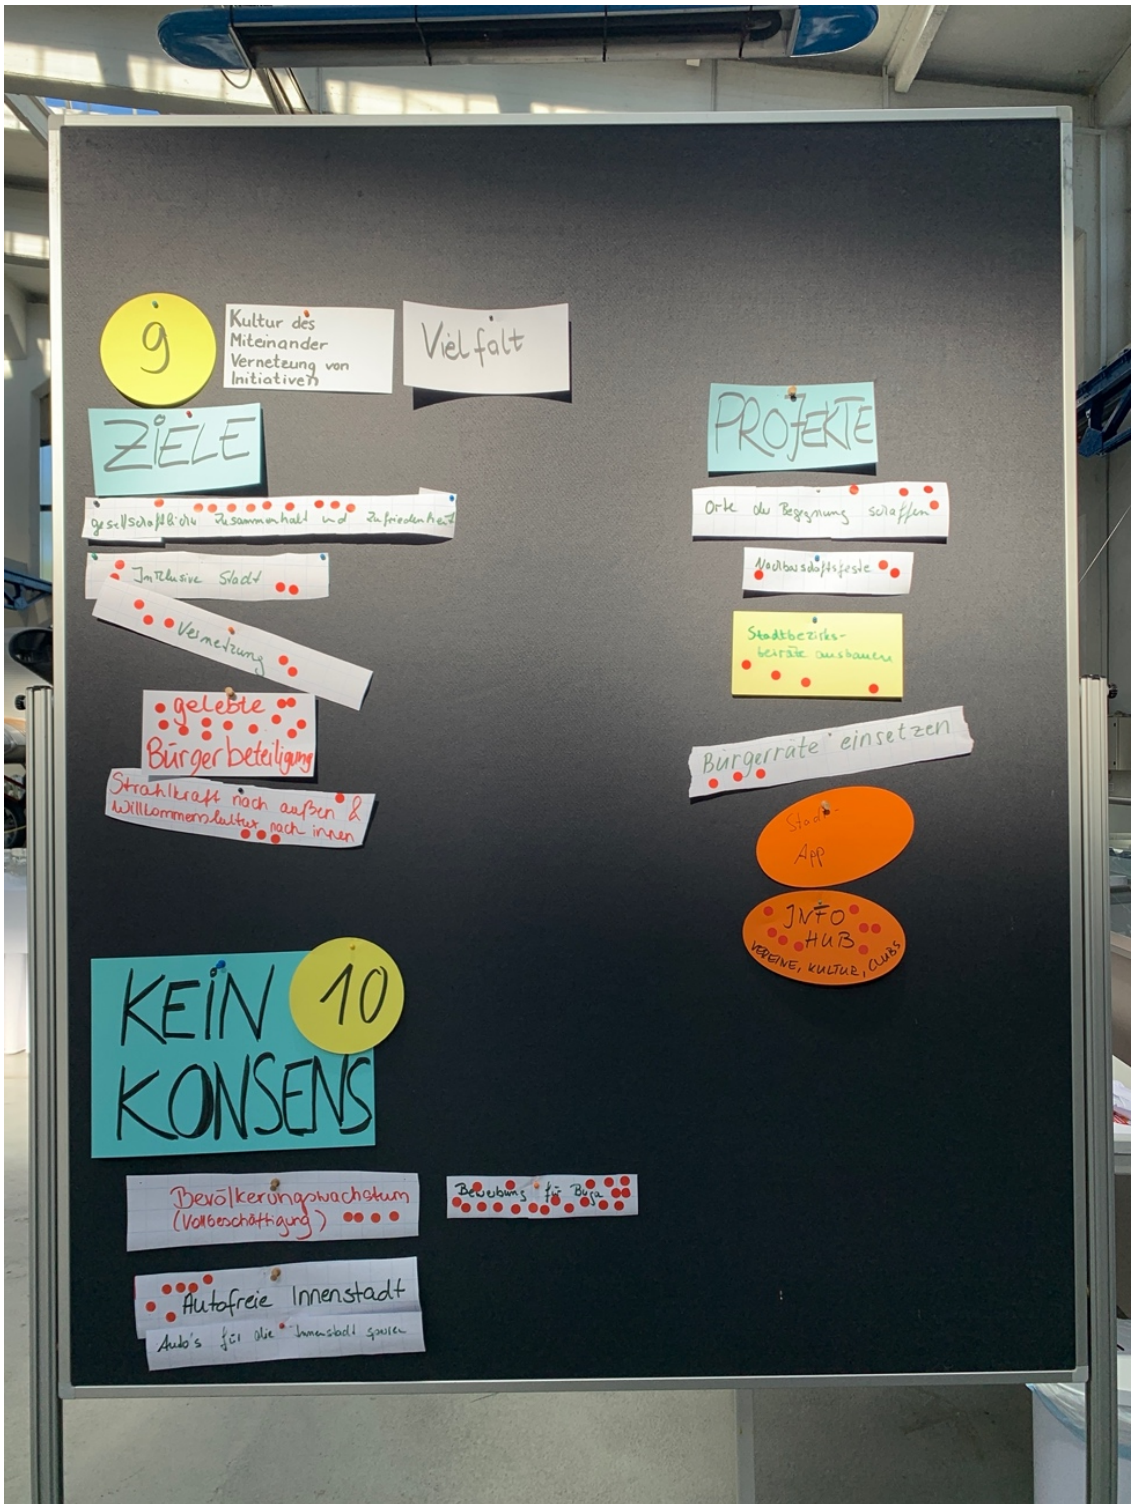 9
Kultur des
Miteinander
Vernetzung von
Initiativen
Vielfalt
ZIELE
gesellschaftlicher Zusammenhalt und Zufriedenheit
Inklusive Stadt
Vernetzung
gelebte
Bürgerbeteiligung
Strahlkraft nach außen &
Willkommenskultur nach innen
PROJEKTE
Orte der Begegnung schaffen
Nachbarschaftsfeste
Stadtbezirks-
beiräte ausbauen
Bürgerräte einsetzen
Stadt-
App
INFO
HUB
VEREINE, KULTUR, CLUBS
KEIN
KONSENS
10
Bevölkerungswachstum
(Vollbeschäftigung)
Bewerbung für Buga
Autofreie Innenstadt
Auto's für die Innenstadt